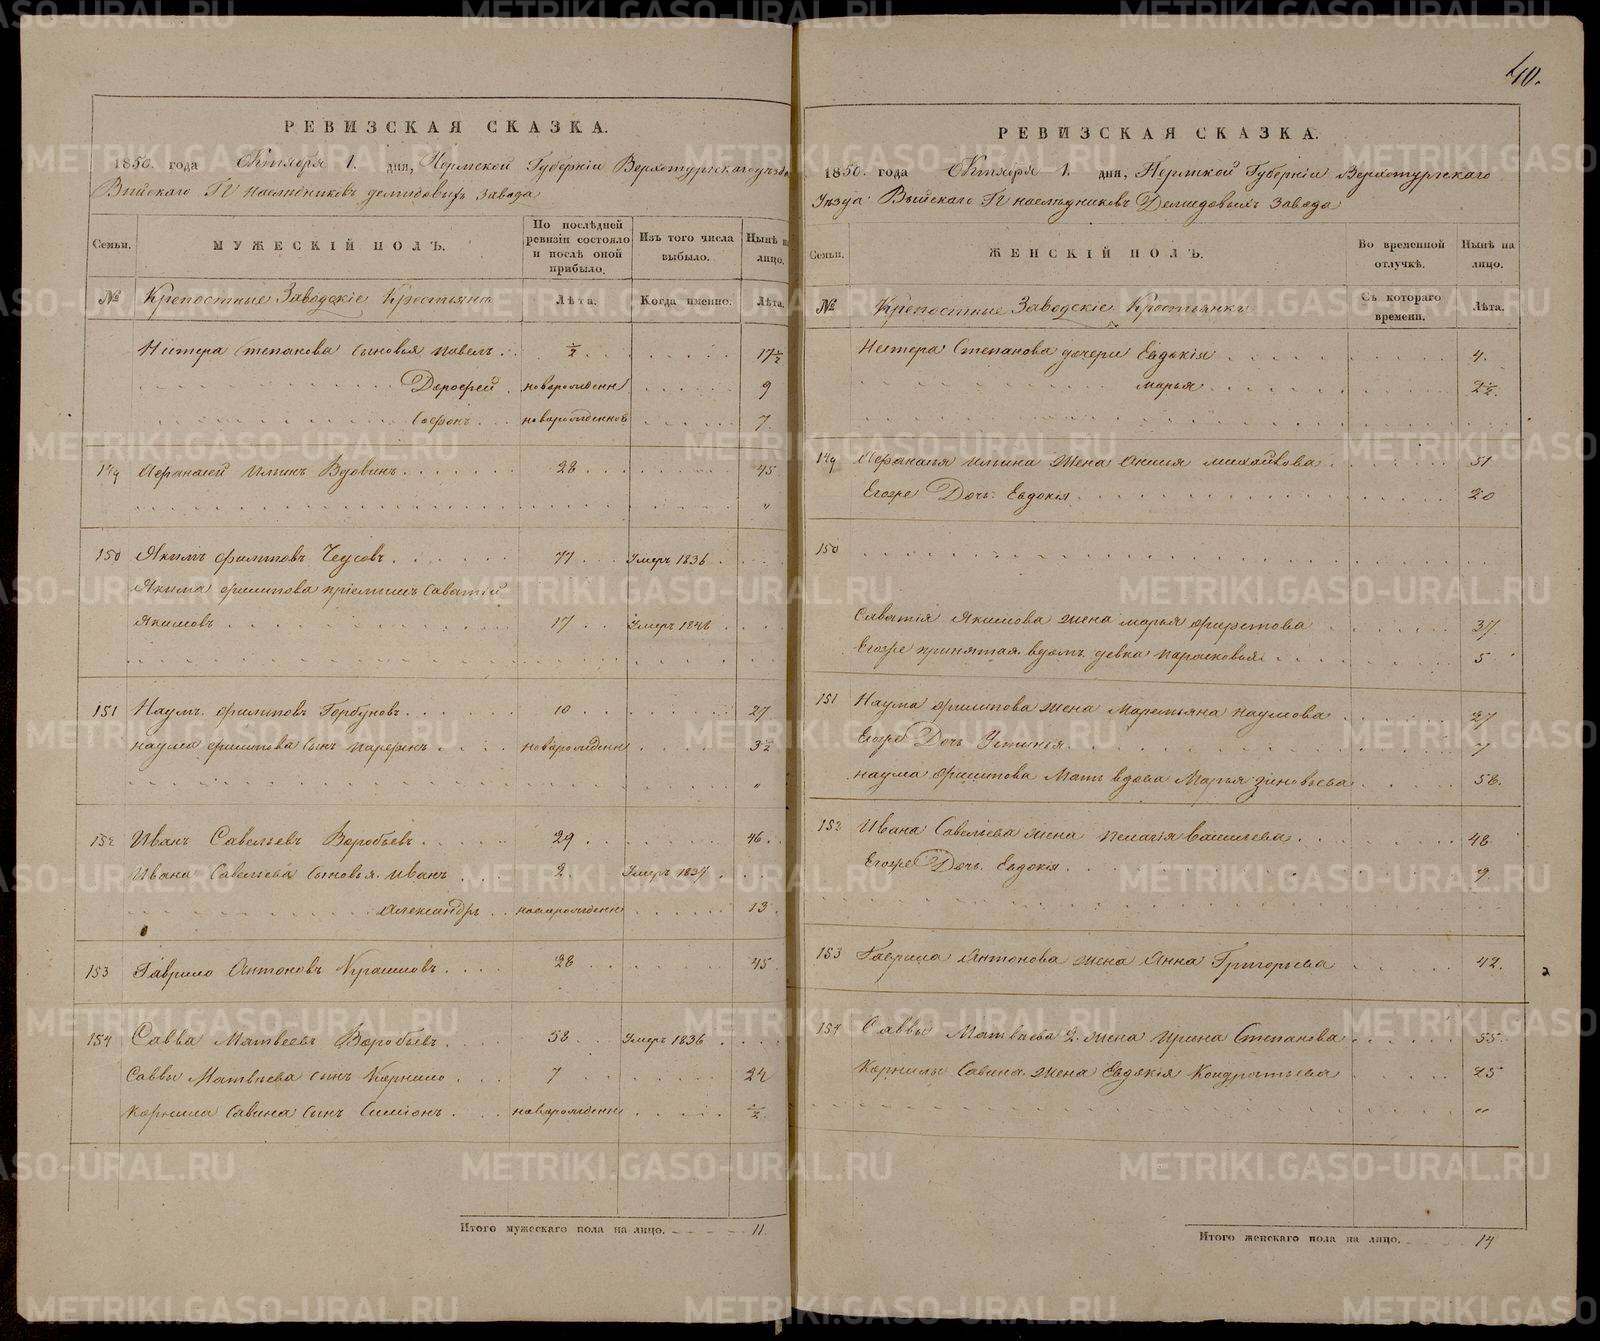 40.
РЕВИЗСКАЯ СКАЗКА.
1850. года Октября 1. дня, Пермской Губерніи Верхотурскаго уѣзда
Выйскаго Гг наслѣдниковъ демидовыхъ завода
Семьи. МУЖЕСКІЙ ПОЛЪ. По послѣдней ревизіи состояло и послѣ оной прибыло. Изъ того числа выбыло. Нынѣ на лицо.
№ Крепостные Заводскіе Крестьяне Лѣта. Когда именно. Лѣта.
Нестера Степанова сыновья Павелъ . . ½ . . . 17½
Дорофей . новорожденн . . . 9
Софонъ . . новорожденной . . . 7
149 Афанасей Ильинъ Вдовинъ . . . 28 . . . 45
"
150 Якимъ Филиповъ Чеусовъ . . . 77 . . . Умеръ 1836 . . .
Якима Филипова пріемышъ Саватій
Якимовъ . . . 17 . . Умеръ 1848 . . .
151 Наумъ Филиповъ Горбуновъ . . . 10 . . . 27
Наума Филипова сынъ Парфенъ . . . новорожденн . . . 3½
"
152 Иванъ Савельевъ Воробьевъ . . . 29 . . . 46
Ивана Савельева сыновья Иванъ . . . 2 . Умеръ 1837 . . .
Александръ . . новорожденн . . . 13
153 Гаврило Антоновъ . . . 28 . . . 45
154 Савва Матвеевъ Воробьевъ . . . 58 . . Умеръ 1836 . . .
Саввы Матвѣева сынъ Корнило . . . 7 . . . 24
Корнила Савина сынъ Симіонъ . . . новорожденн . . . ½
Итого мужескаго пола на лицо. 11
РЕВИЗСКАЯ СКАЗКА.
1850. года Октября 1. дня, Пермской Губерніи Верхотурскаго
Уѣзда Выйскаго Гг наслѣдниковъ Демидовыхъ завода
Семьи. ЖЕНСКІЙ ПОЛЪ. Во временной отлучкѣ. Нынѣ на лицо.
№ Крепостные Заводскіе Крестьянки Съ котораго времени. Лѣта.
Нестера Степанова дочери Евдокія . . . 4.
Марья . . . 2½
149 Афанасія Ильина жена Анисья Михайлова . . . 51
Егоже Дочь Евдокія . . . 20
150
Саватія Якимова жена Марья . . . 37
Егоже принятая вдомъ девка Парасковья . . . 5
151 Наума Филипова жена Маремьяна Наумова . . . 27
Егоже Дочь Устинія . . . 7
Наума Филипова Мать вдова Марья Зиновьева . . . 58.
152 Ивана Савельева жена Пелагія Васильева . . . 48
Егоже Дочь Евдокія . . . 9
153 Гаврила Антонова жена Анна Григорьева . . . 42.
154 Саввы Матвѣева 2. жена Ирина Степанова . . . 55
Корнилы Савина жена Евдокія Кондратьева . . . 25
"
Итого женскаго пола на лицо. 14
METRIKI.GASO-URAL.RU